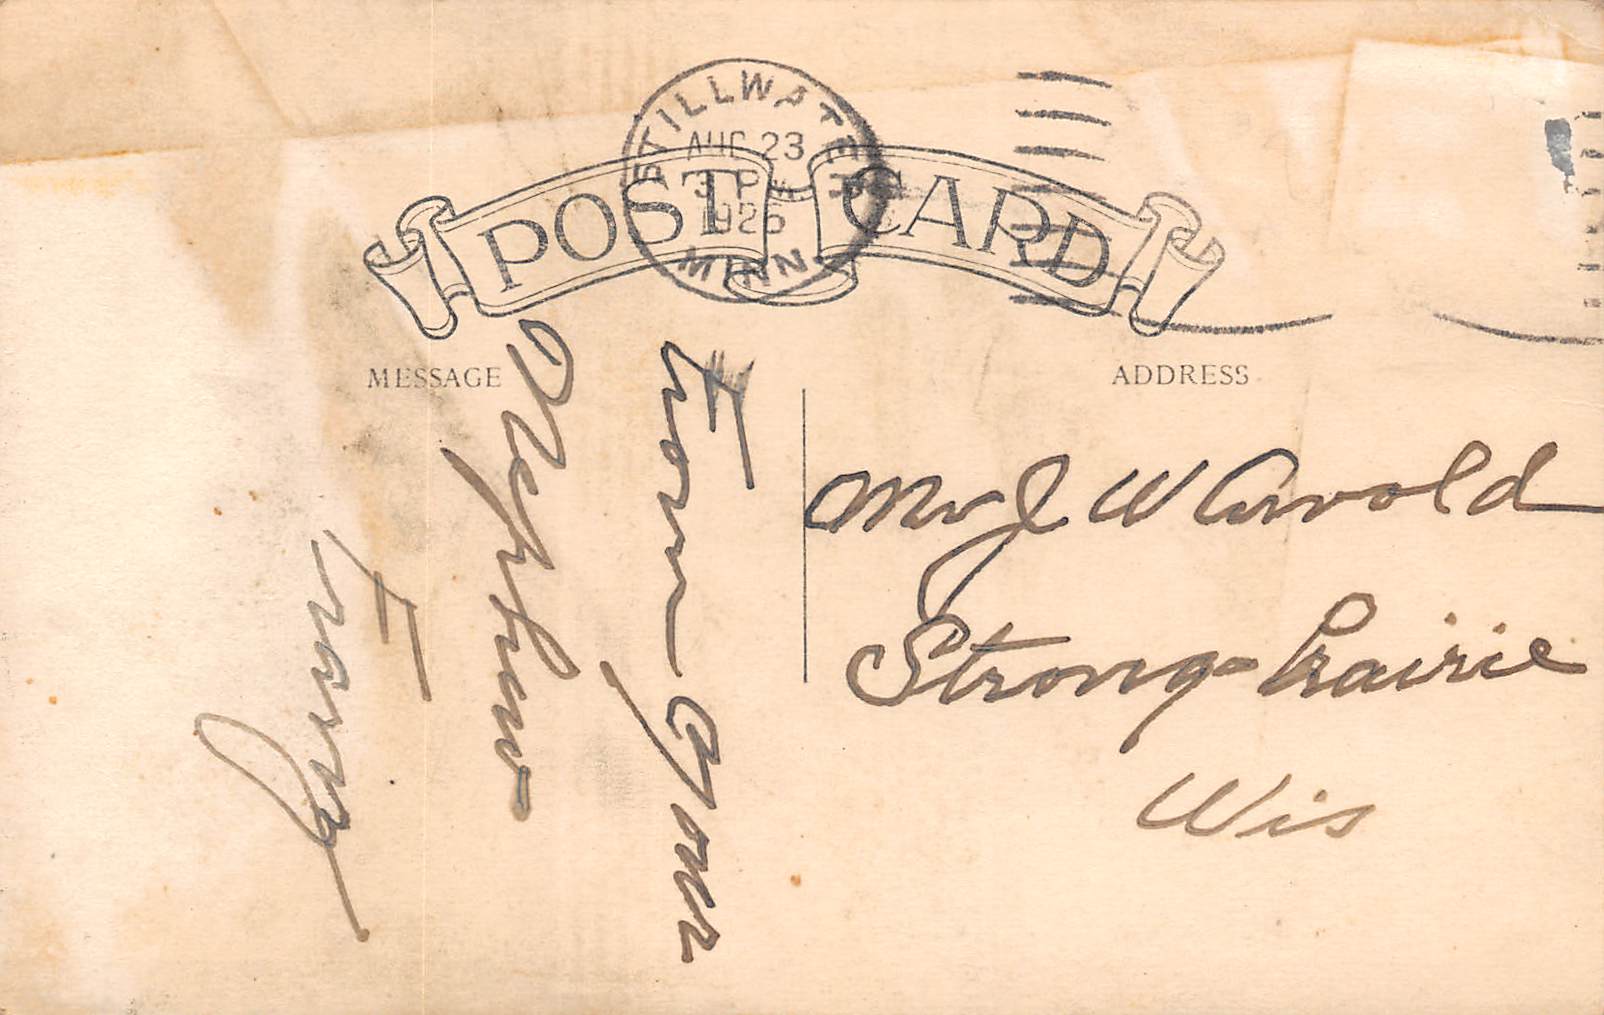 STILLWATER
AUG 23
3 PM
1925
MINN
POST CARD
MESSAGE
ADDRESS
From Your
Nephew
Mr J W Arvold
Strong Prairie
Wis